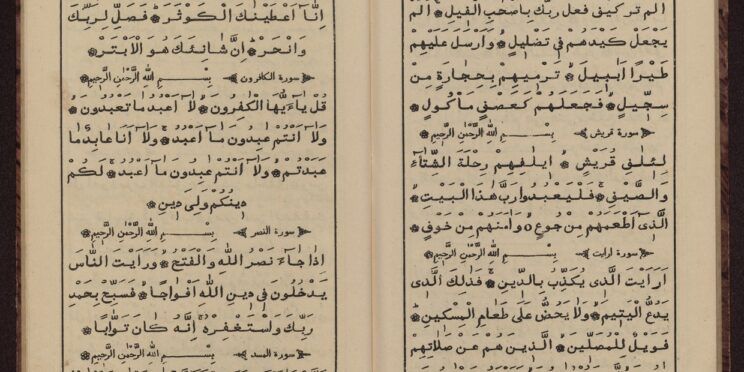 الم تر كيف فعل ربك باصحب الفيل الم
يجعل كيدهم في تضليل وارسل عليهم
طيرا ابابيل ترميهم بحجارة من
سجيل فجعلهم كعصف ماكول
سورة قريش بسم الله الرحمن الرحيم
لئلف قريش ايلفهم رحلة الشتاء
والصيف فليعبدوا رب هذا البيت
الذي اطعمهم من جوع وءامنهم من خوف
سورة ارايت بسم الله الرحمن الرحيم
ارايت الذي يكذب بالدين فذلك الذي
يدع اليتيم ولا يحض على طعام المسكين
فويل للمصلين الذين هم عن صلاتهم
انا اعطينك الكوثر فصل لربك
وانحر ان شانئك هو الابتر
سورة الكافرون بسم الله الرحمن الرحيم
قل يايها الكفرون لا اعبد ما تعبدون
ولا انتم عبدون ما اعبد ولا انا عابد ما
عبدتم ولا انتم عبدون ما اعبد لكم
دينكم ولي دين
سورة النصر بسم الله الرحمن الرحيم
اذا جاء نصر الله والفتح ورايت الناس
يدخلون في دين الله افواجا فسبح بحمد
ربك واستغفره انه كان توابا
سورة المسد بسم الله الرحمن الرحيم